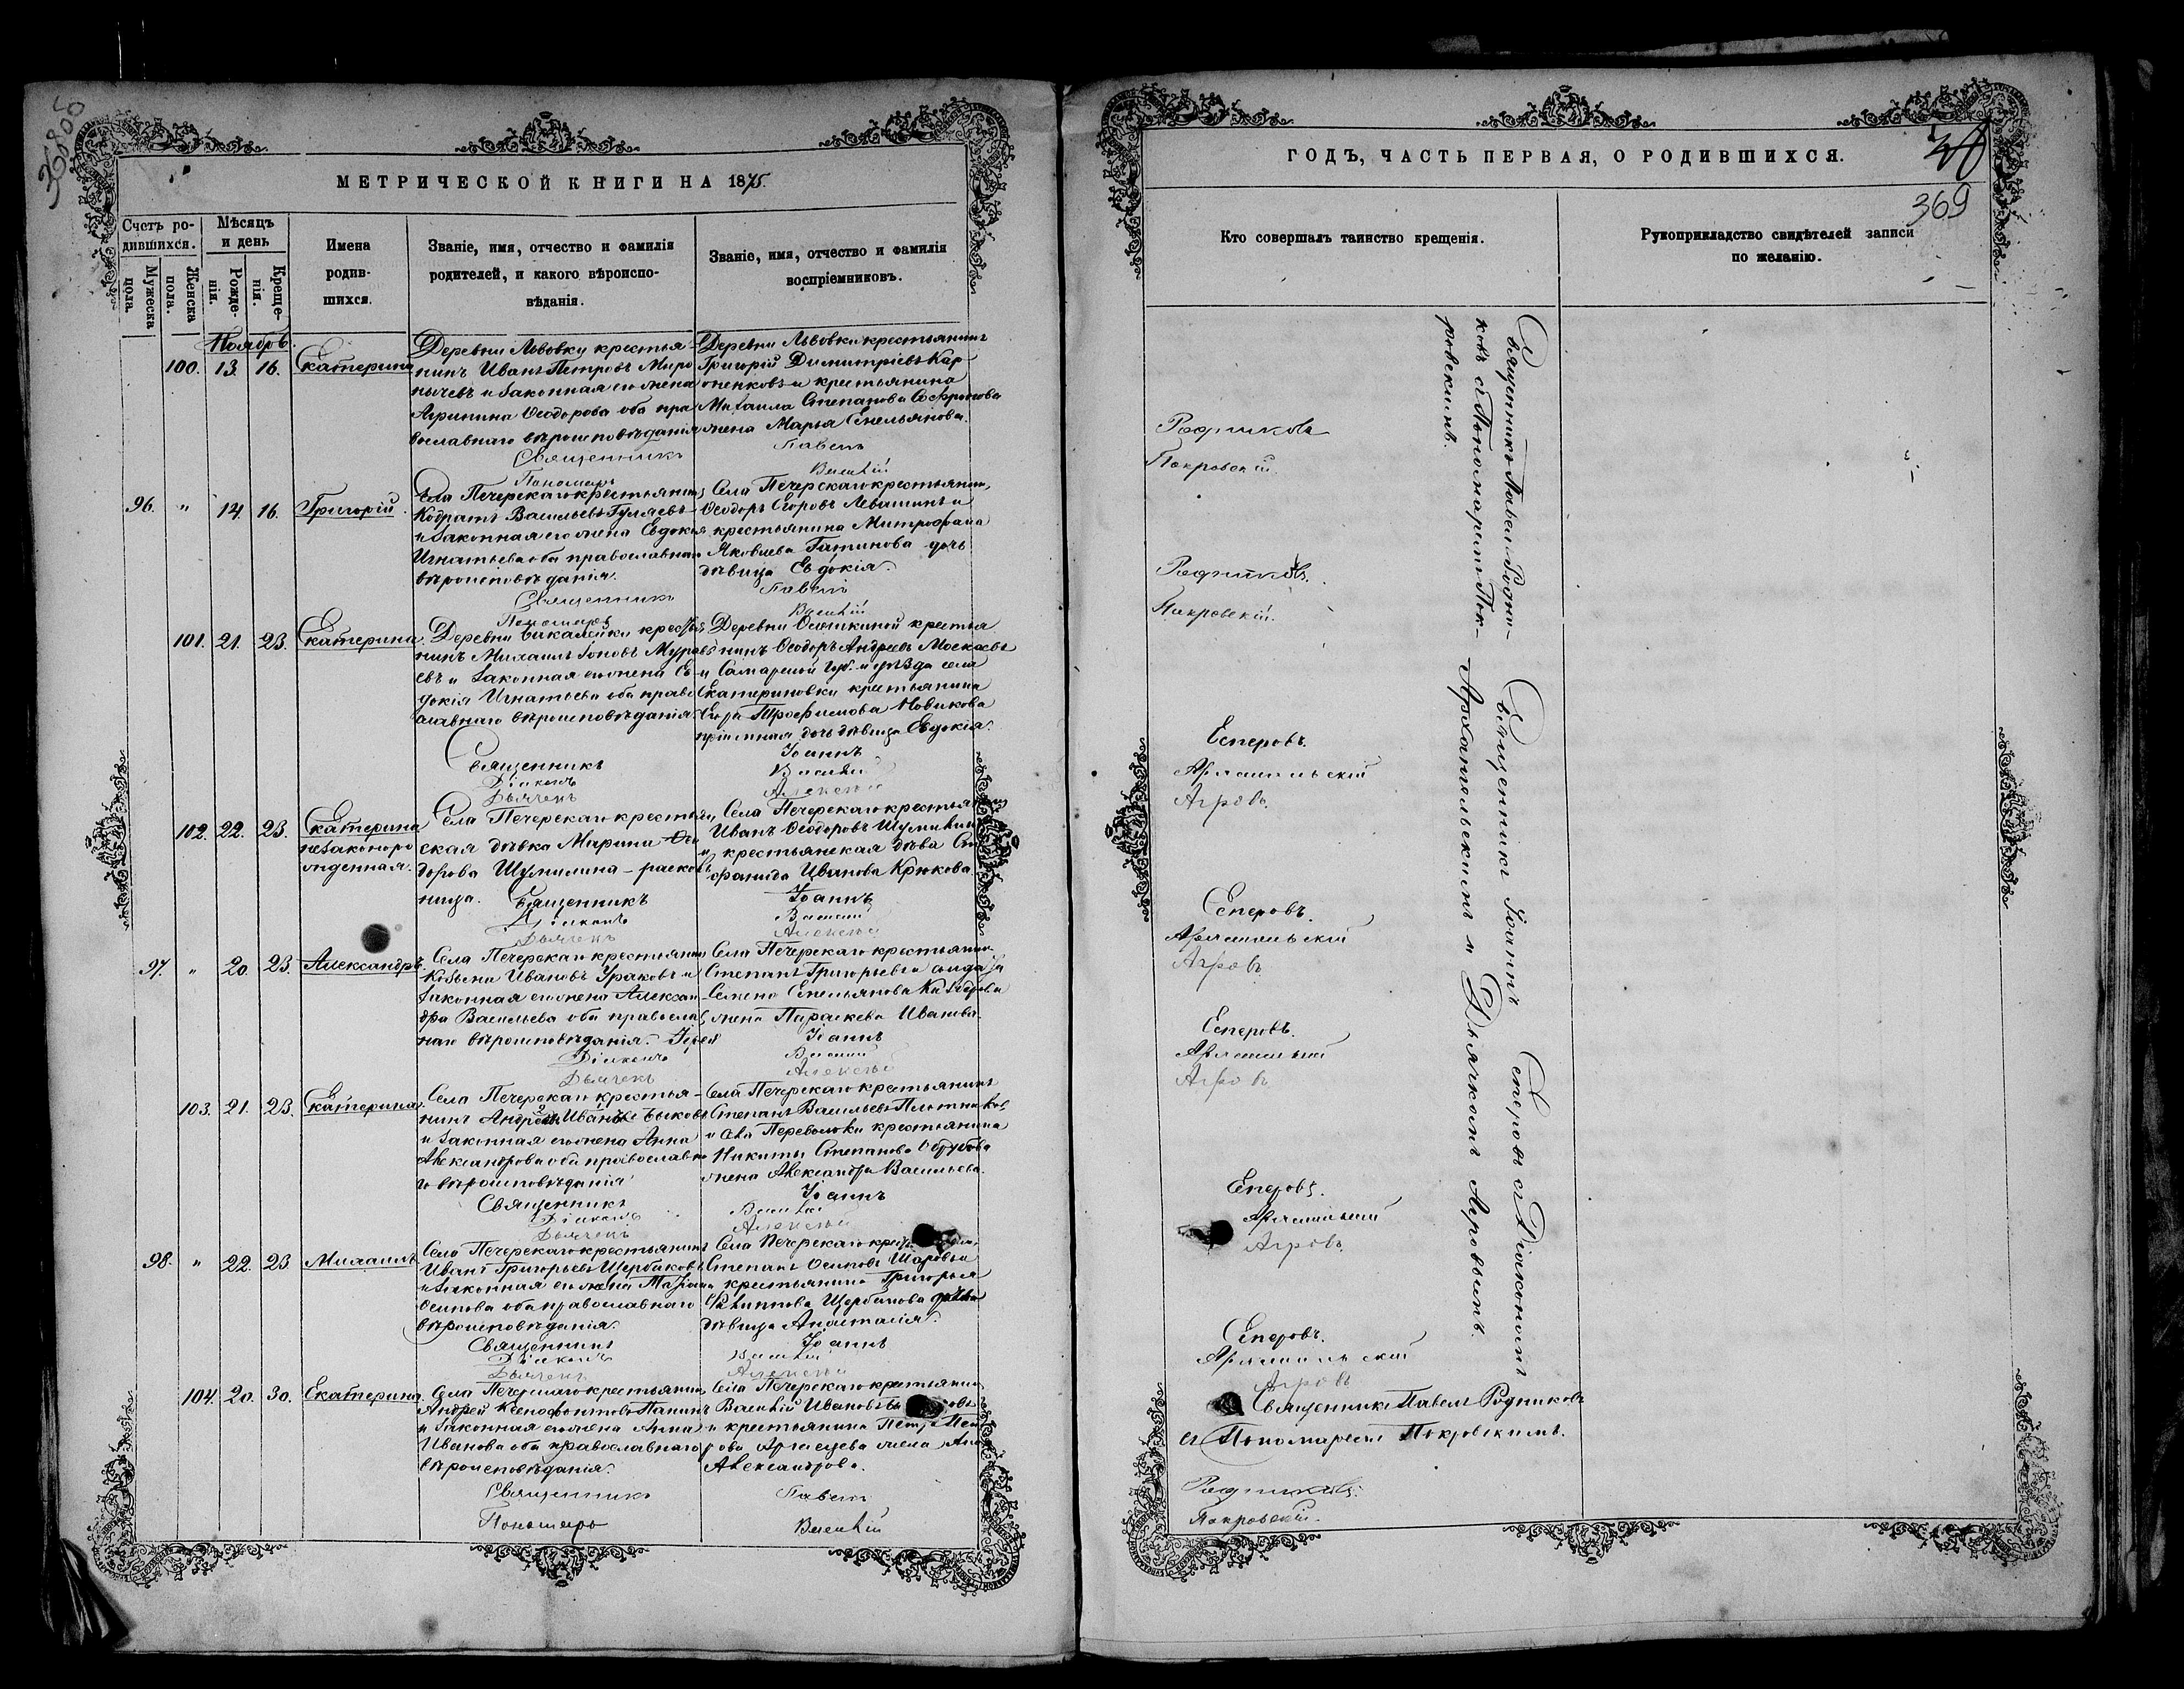 МЕТРИЧЕСКОЙ КНИГИ НА 1875.
Счетъ ро-
дившихся.
Мужеска
пола.
Женска
пола.
Мѣсяцъ
и день
Рожде-
нія.
Креще-
нія.
Имена
родив-
шихся.
Званіе, имя, отчество и фамилія
родителей, и какого вѣроиспо-
вѣданія.
Званіе, имя, отчество и фамилія
воспріемниковъ.
Ноябрь.
100. 13. 16. Екатерина
Деревни Львовки крестья-
нинъ Иванъ Петровъ Миро
нычевъ и законная его жена
Агрипина Ѳеодорова оба пра
вославнаго вѣроисповѣданія
Священникъ
Пономарь
Деревни Львовки крестьянинъ
Григорій Димитріевъ Кар-
пенковъ и крестьянина
Михаила Степанова Софронова
жена Марья Емельянова.
Павелъ
Василій
96. " 14. 16. Григорій.
Села Печерскаго крестьянинъ
Кодратъ Васильевъ Гуляевъ
и законная его жена Евдокія
Игнатьева оба православнаго
вѣроисповѣданія.
Священникъ
Пономарь
Села Печерскаго крестьянинъ
Ѳеодоръ Егоровъ Левашинъ и
крестьянина Митрофана
Яковлева Гатинова дочь
дѣвица Евдокія.
Павелъ
Василій
101. 21. 23. Екатерина
Деревни Бикалейки крестья
нинъ Михаилъ Іоновъ Мурав
евъ и законная его жена Ев
докія Игнатьева оба право
славнаго вѣроисповѣданія.
Священникъ
Діаконъ
Дьячекъ
Деревни крестья
нинъ Ѳеодоръ Андреевъ Москаевъ
и Самарской губ. и уѣзда села
Екатериновки крестьянина
Егора Трофимова Новикова
пріемная дочь дѣвица Евдокія.
Іоаннъ
Василій
Алексѣй
102. 22. 23. Екатерина
незаконоро
жденная.
Села Печерскаго крестьян
ская дѣвка Марина Ѳео
дорова Шумилина - расколь
ница. Священникъ
Діаконъ
Дьячекъ
Села Печерскаго крестьянинъ
Иванъ Ѳеодоровъ Шумилинъ
и крестьянская дѣва Сте
фанида Иванова Крюкова
Іоаннъ
Василій
Алексѣй
97. " 20. 23. Александръ.
Села Печерскаго крестьянинъ
Козьма Ивановъ Ураковъ и
законная его жена Алексан
дра Васильева оба православ
наго вѣроисповѣданія. Іерей
Діаконъ
Дьячекъ
Села Печерскаго крестьянинъ
Степанъ Григорьевъ и солдата
Семена Емельянова
жена Параскева Иванова.
Іоаннъ
Василій
Алексѣй
103. 21. 23. Екатерина.
Села Печерскаго крестья-
нинъ Андрей Ивановъ Быковъ
и законная его жена Анна
Александрова оба православна
го вѣроисповѣданія
Священникъ
Діаконъ
Дьячекъ
Села Печерскаго крестьянинъ
Степанъ Васильевъ Плотниковъ
и села Переволоки крестьянина
Никиты Степанова
жена Александра Васильева.
Іоаннъ
Василій
Алексѣй
98. " 22. 23 Михаилъ
Села Печерскаго крестьянинъ
Иванъ Григорьевъ Щербаковъ
и законная его жена Татіана
Осипова оба православнаго
вѣроисповѣданія.
Священникъ
Діаконъ
Дьячекъ
Села Печерскаго
Степанъ Осиповъ Шаровъ и
крестьянина Григорья
Филиппова Щербакова
дѣвица Анастасія.
Іоаннъ
Василій
Алексѣй
104. 20. 30. Екатерина
Села Печерскаго крестьянинъ
Андрей Ксенофонтовъ Панинъ
и законная его жена Анна
Иванова оба православнаго
вѣроисповѣданія.
Священникъ
Пономарь
Села Печерскаго крестьянинъ
Василій Ивановъ
и крестьянина Петра Пет
рова жена Анна
Александрова.
Павелъ
Василій
ГОДЪ, ЧАСТЬ ПЕРВАЯ, О РОДИВШИХСЯ.
369
Кто совершалъ таинство крещенія.
Рукоприкладство свидѣтелей записи
по желанію.
Священникъ Павелъ Родни-
ковъ съ Пономаремъ Пок-
ровскимъ.
Родниковъ
Покровскій.
Родниковъ.
Покровскій.
Священникъ Іоаннъ Есперовъ съ Діакономъ
Архангельскимъ и Дьячкомъ Агровымъ.
Есперовъ.
Архангельскій
Агровъ.
Есперовъ.
Архангельскій
Агровъ
Есперовъ.
Архангельскій
Агровъ
Есперовъ.
Архангельскій
Агровъ.
Есперовъ.
Архангельскій
Агровъ
Священникъ Павелъ Родниковъ
съ Пономаремъ Покровскимъ.
Родниковъ.
Покровскій.